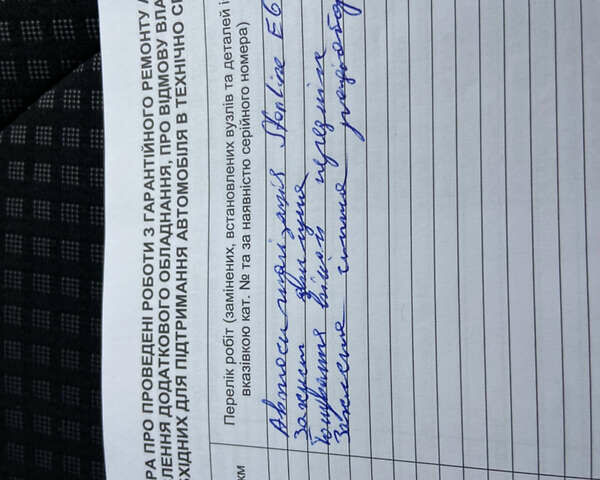 РА ПРО ПРОВЕДЕНІ РОБОТИ З ГАРАНТІЙНОГО РЕМОНТУ
ЛЕННЯ ДОДАТКОВОГО ОБЛАДНАННЯ, ПРО ВІДМОВУ ВЛА
ХІДНИХ ДЛЯ ПІДТРИМАННЯ АВТОМОБІЛЯ В ТЕХНІЧНО
км
Перелік робіт (замінених, встановлених вузлів та деталей із
вказівкою кат. № та за наявністю серійного номера)
Автосигналізація Starline E6
Захист двигуна
Тонування вікон передніх